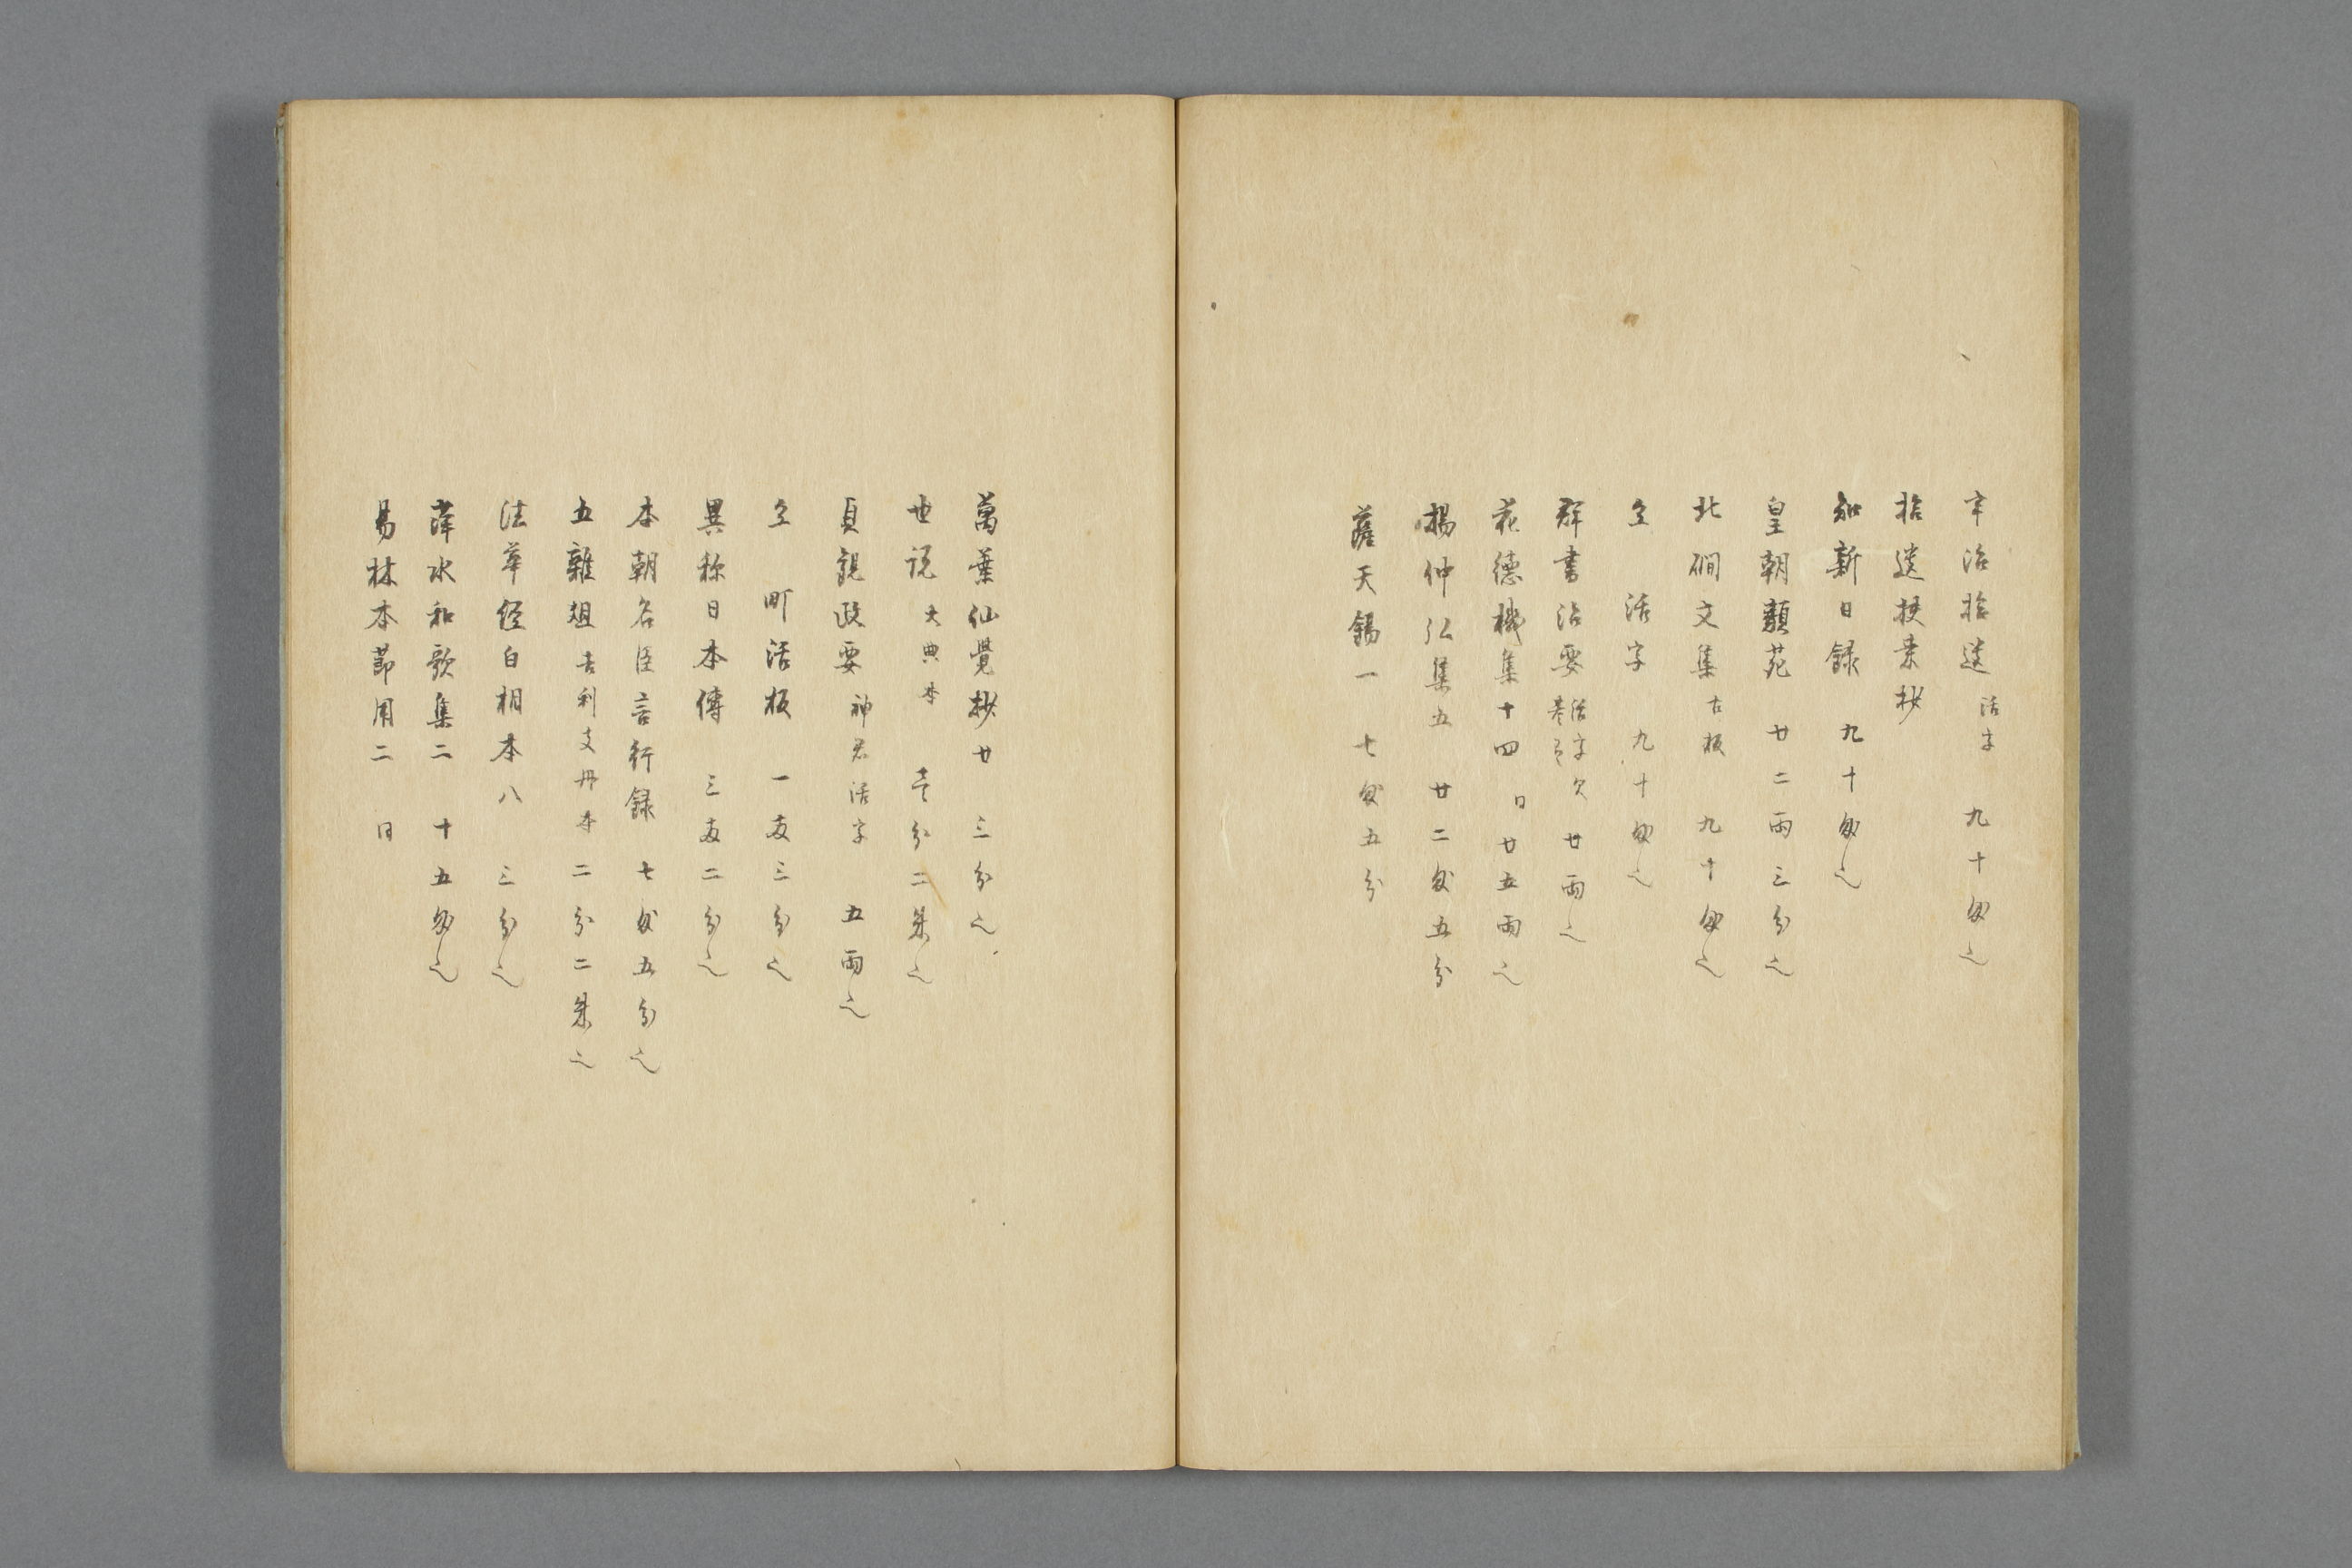 宇治拾遺 活字 九十匁
拾遺抉菜抄
知新日録 九十匁
皇朝類苑 廿二両三分
北磵文集 古板 九十匁
仝 活字 九十匁
群書治要 活字欠 廿両
范徳機集十四日 廿五両
楊仲弘集五 廿二匁五分
薩天錫一 七匁五分
萬葉仙覺抄廿 三分
世説 大典本 壱分二朱
貞観政要 神君活字 五両
仝 町活板 一両三分
異称日本傳 三両二分
本朝名臣言行録 七匁五分
五雜俎 吉利支丹本 二分二朱
法華経白相本八 三分
萍水和歌集二 十五匁
易林本節用二 日